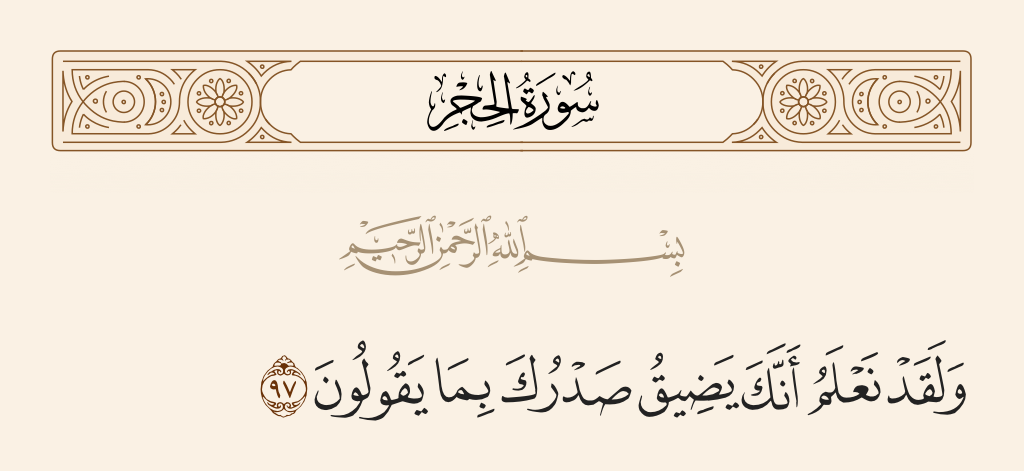 سُورَةُ الحِجْرِ
بِسْمِ ٱللَّهِ ٱلرَّحْمَٰنِ ٱلرَّحِيمِ
وَلَقَدْ نَعْلَمُ أَنَّكَ يَضِيقُ صَدْرُكَ بِمَا يَقُولُونَ ٩٧